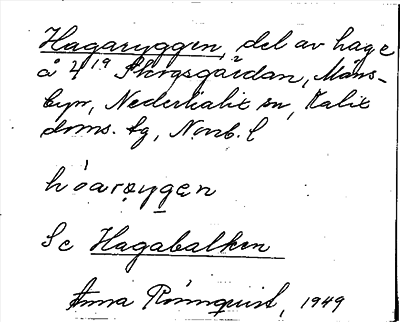 Hagaryggen, del av hage
å 4¹⁹ Skogsgårdan, Måns-
byn, Nederkalix sn, Kalix
doms. tg, Norrb. l
hoarygen
Se Hagabalken
Anna Rönnquist, 1949